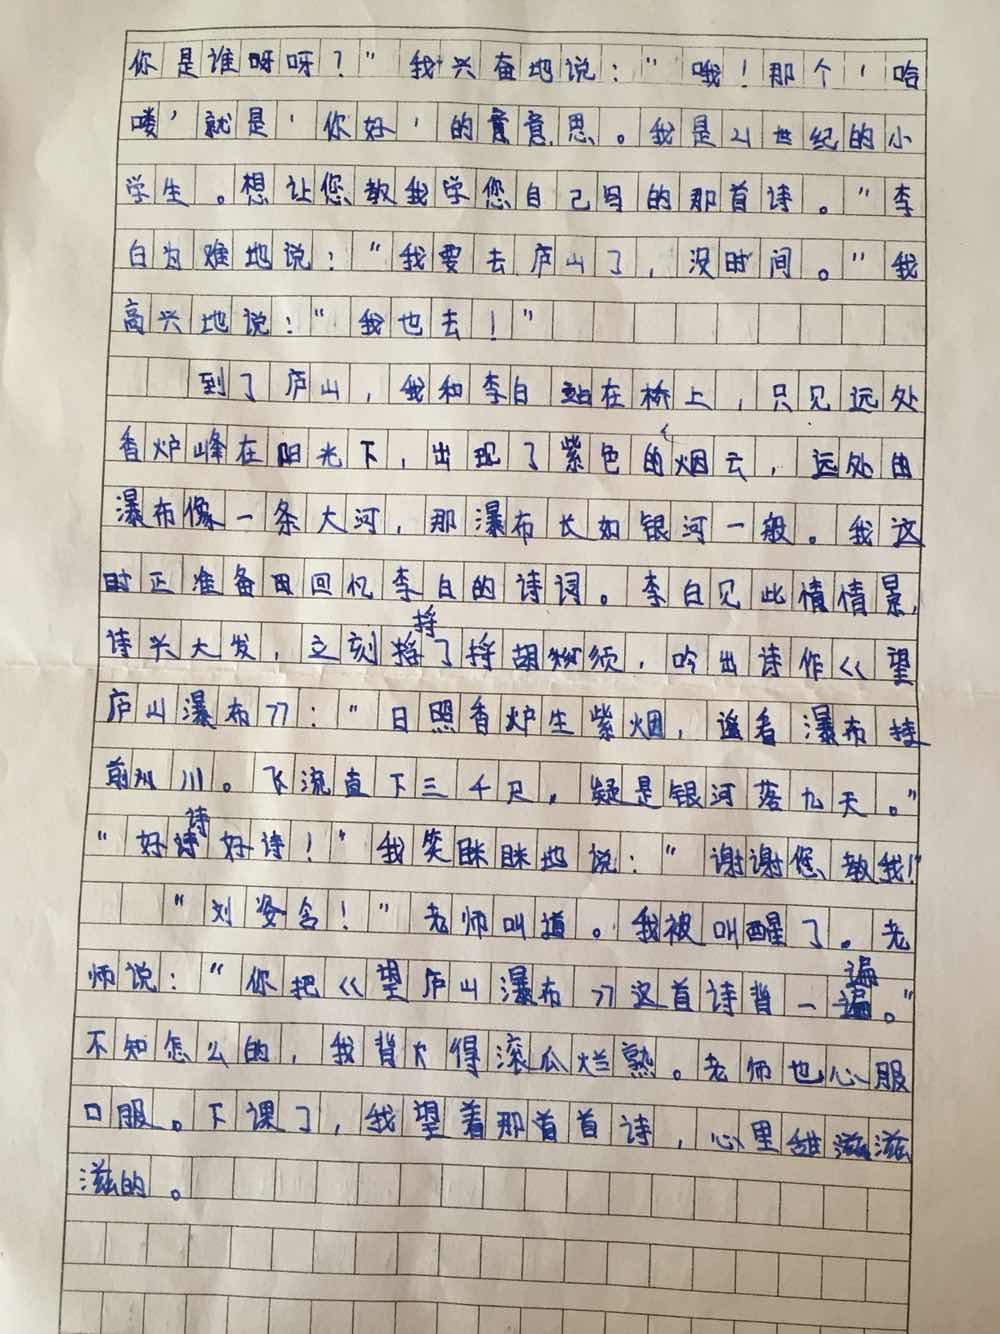 你是谁呀呀？”我兴奋地说：“哦！那个‘哈
喽’就是‘你好’的意意思。我是21世纪的小
学生。想让您教我学您自己写的那首诗。”李
白为难地说：“我要去庐山了，没时间。”我
高兴地说：“我也去！”
到了庐山，我和李白站在桥上，只见远处
香炉峰在阳光下，出现了紫色的烟云，远处的
瀑布像一条大河，那瀑布长如银河一般。我这
时正准备回忆李白的诗词。李白见此情情景，
诗兴大发，立刻捋了捋胡须，吟出诗作《望
庐山瀑布》：“日照香炉生紫烟，遥看瀑布挂
前川。飞流直下三千尺，疑是银河落九天。”
“好诗好诗！”我笑眯眯地说：“谢谢您教我！”
“刘姿含！”老师叫道。我被叫醒了。老
师说：“你把《望庐山瀑布》这首诗背一遍。”
不知怎么的，我背得滚瓜烂熟。老师也心服
口服。下课了，我望着那首首诗，心里甜滋滋
滋的。